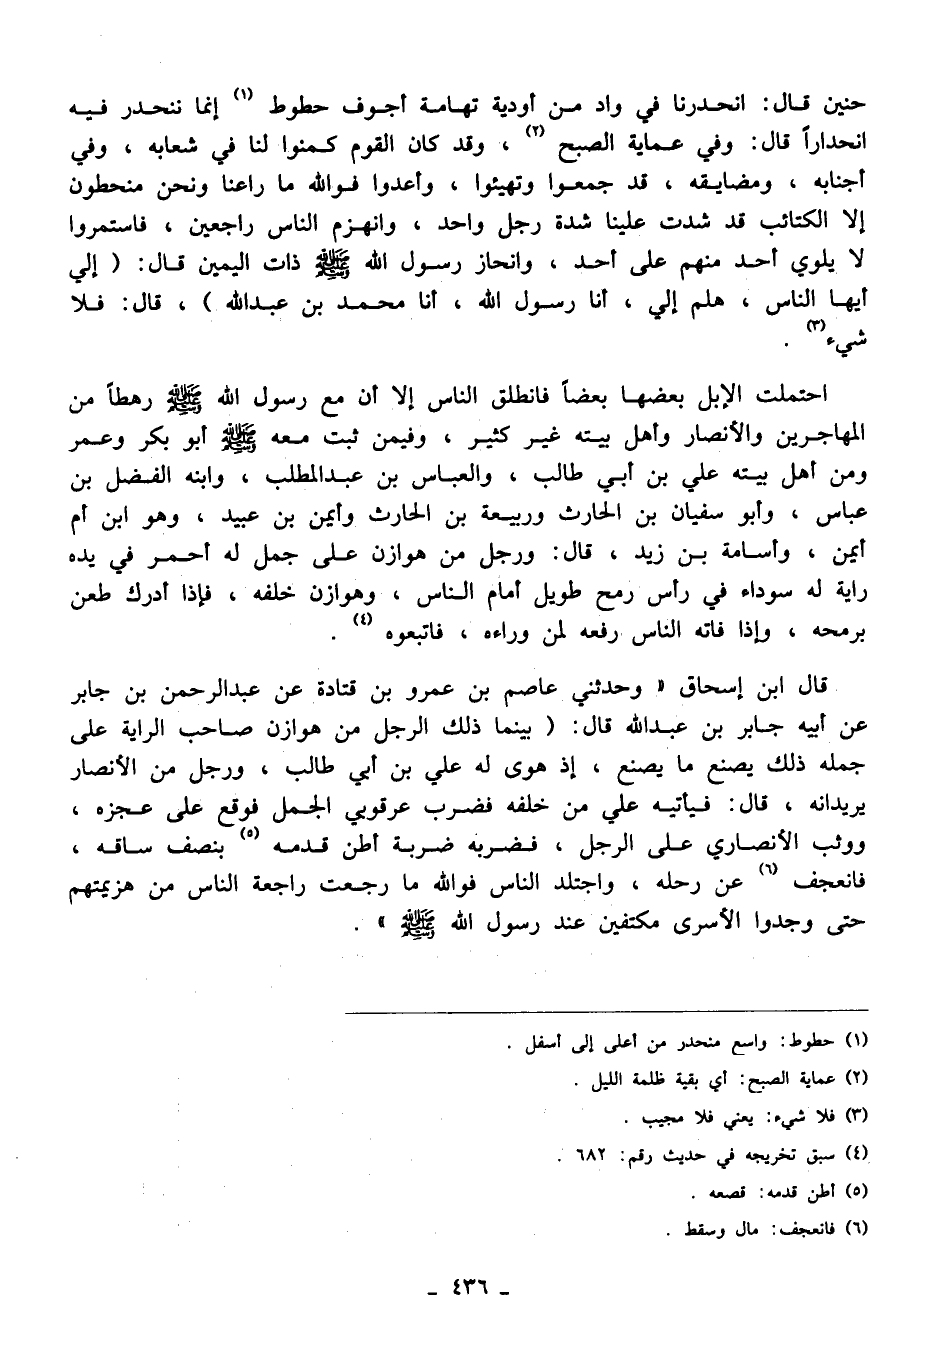 حنين قال: انحدرنا في واد من أودية تهامة أجوف حطوط (١) إنما ننحدر فيه
انحداراً قال: وفي عماية الصبح (٢) ، وقد كان القوم كمنوا لنا في شعابه ، وفي
أجنابه ، ومضايقه ، قد جمعوا وتهيئوا ، وأعدوا فوالله ما راعنا ونحن منحطون
إلا الكتائب قد شدت علينا شدة رجل واحد ، وانهزم الناس راجعين ، فاستمروا
لا يلوي أحد منهم على أحد ، وانحاز رسول الله ﷺ ذات اليمين قال: ( إلي
أيها الناس ، هلم إلي ، أنا رسول الله ، أنا محمد بن عبدالله ) ، قال: فلا
شيء (٣) .
احتملت الإبل بعضها بعضاً فانطلق الناس إلا أن مع رسول الله ﷺ رهطاً من
المهاجرين والأنصار وأهل بيته غير كثير ، وفيمن ثبت معه ﷺ أبو بكر وعمر
ومن أهل بيته علي بن أبي طالب ، والعباس بن عبدالمطلب ، وابنه الفضل بن
عباس ، وأبو سفيان بن الحارث وربيعة بن الحارث وأيمن بن عبيد ، وهو ابن أم
أيمن ، وأسامة بن زيد ، قال: ورجل من هوازن على جمل له أحمر في يده
راية له سوداء في رأس رمح طويل أمام الناس ، وهوازن خلفه ، فإذا أدرك طعن
برمحه ، وإذا فاته الناس رفعه لمن وراءه ، فاتبعوه (٤) .
قال ابن إسحاق « وحدثني عاصم بن عمرو بن قتادة عن عبدالرحمن بن جابر
عن أبيه جابر بن عبدالله قال: ( بينما ذلك الرجل من هوازن صاحب الراية على
جمله ذلك يصنع ما يصنع ، إذ هوى له علي بن أبي طالب ، ورجل من الأنصار
يريدانه ، قال: فيأتيه علي من خلفه فضرب عرقوبي الجمل فوقع على عجزه ،
ووثب الأنصاري على الرجل ، فضربه ضربة أطن قدمه (٥) بنصف ساقه ،
فانعجف (٦) عن رحله ، واجتلد الناس فوالله ما رجعت راجعة الناس من هزيمتهم
حتى وجدوا الأسرى مكتفين عند رسول الله ﷺ » .
(١) حطوط: واسع منحدر من أعلى إلى أسفل .
(٢) عماية الصبح: أي بقية ظلمة الليل .
(٣) فلا شيء: يعني فلا مجيب .
(٤) سبق تخريجه في حديث رقم: ٦٨٢ .
(٥) أطن قدمه: قصعه .
(٦) فانعجف: مال وسقط .
- ٤٣٦ -